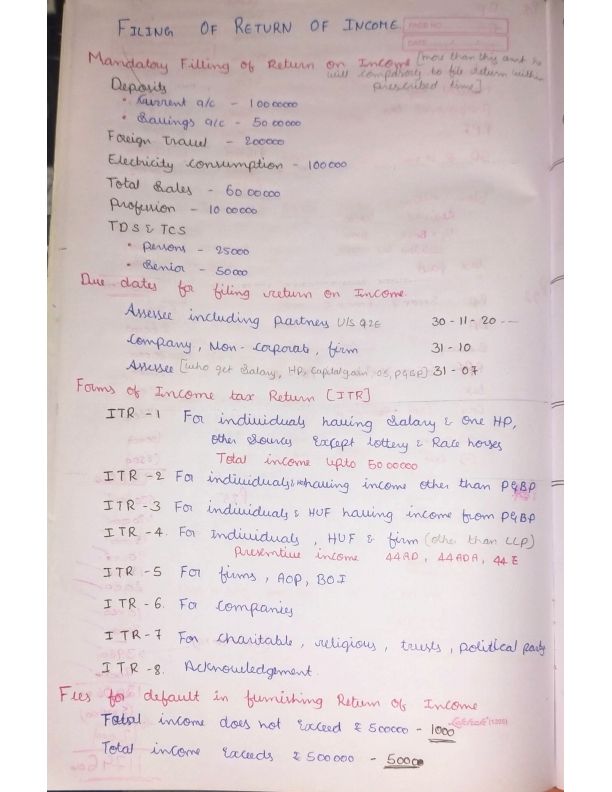 FILING OF RETURN OF INCOME
PAGE NO.
DATE
Mandatory Filling of Return on Income [more than this amt he
will compulsory to file return within
prescribed time]
Deposits
• Current a/c - 10000000
• Savings a/c - 5000000
Foreign Travel - 200000
Electricity consumption - 100000
Total Sales - 6000000
Profession - 1000000
TDS & TCS
• persons - 25000
• Senior - 50000
Due dates for filing return on Income.
Assessee including partners U/S 92E 30-11-20--
Company, Non-corporate, firm 31-10
Assessee [who get Salary, HP, Capital gain OS, PGBP] 31-07
Forms of Income tax Return [ITR]
ITR -1 For individuals having Salary & one HP,
other Sources Except lottery & Race horses
Total income upto 5000000
ITR -2 For individuals & having income other than PGBP
ITR -3 For individuals & HUF having income from PGBP
ITR -4. For Individuals, HUF & firm (other than LLP)
income 44AD, 44ADA, 44E
ITR -5 For firms, AOP, BOI
ITR -6. For companies
ITR -7 For charitable, religious, trusts, political party
ITR -8. Acknowledgement.
Fees for default in furnishing Return Of Income
Total income does not Exceed ₹ 500000 - 1000
Total income Exceeds ₹ 500000 - 5000